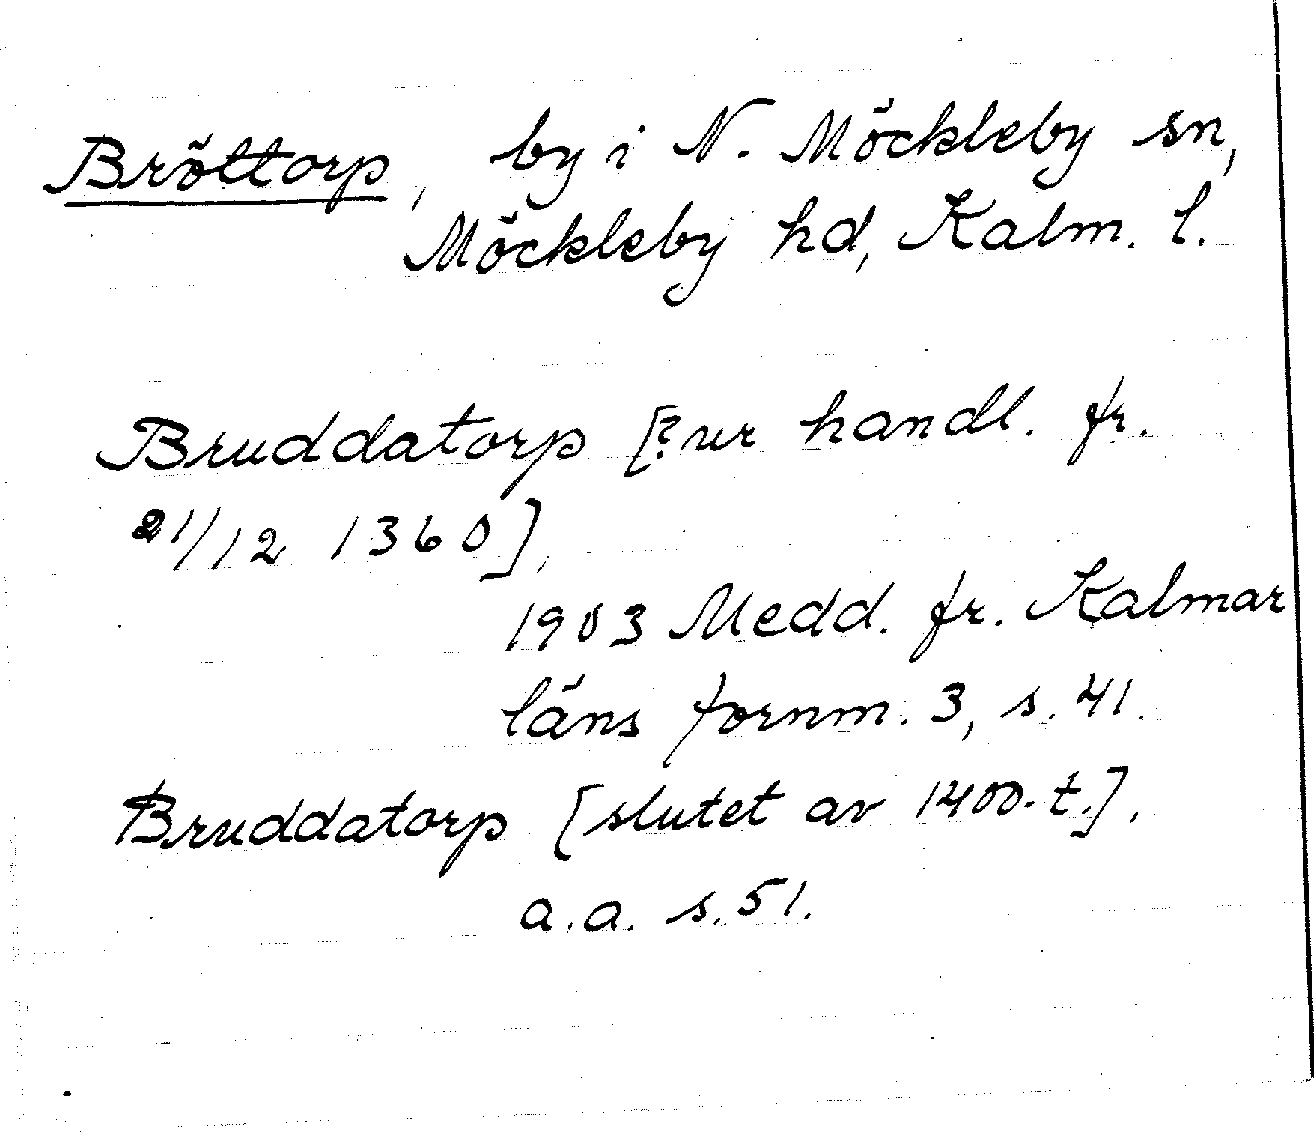 Bröttorp, by i N. Möckleby sn,
Möckleby hd, Kalm. l.
Bruddatorp [? ur handl. fr.
21/12 1360],
1903 Medd. fr. Kalmar
läns fornm. 3, s. 41.
Bruddatorp [slutet av 1400-t.],
a.a. s. 51.